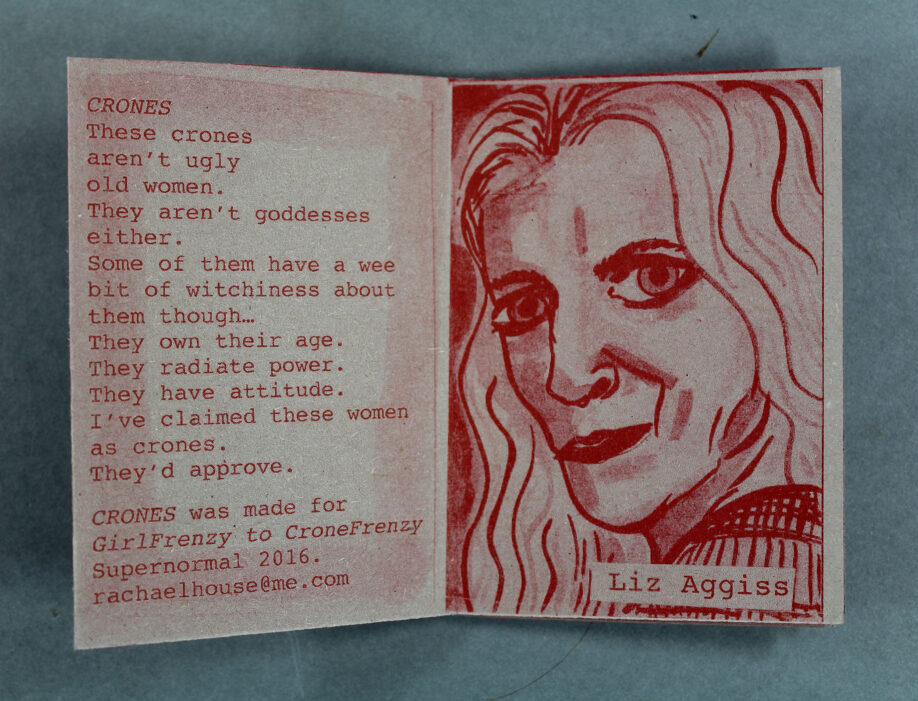 CRONES
These crones
aren't ugly
old women.
They aren't goddesses
either.
Some of them have a wee
bit of witchiness about
them though…
They own their age.
They radiate power.
They have attitude.
I've claimed these women
as crones.
They'd approve.
CRONES was made for
GirlFrenzy to CroneFrenzy
Supernormal 2016.
rachaelhouse@me.com
Liz Aggiss